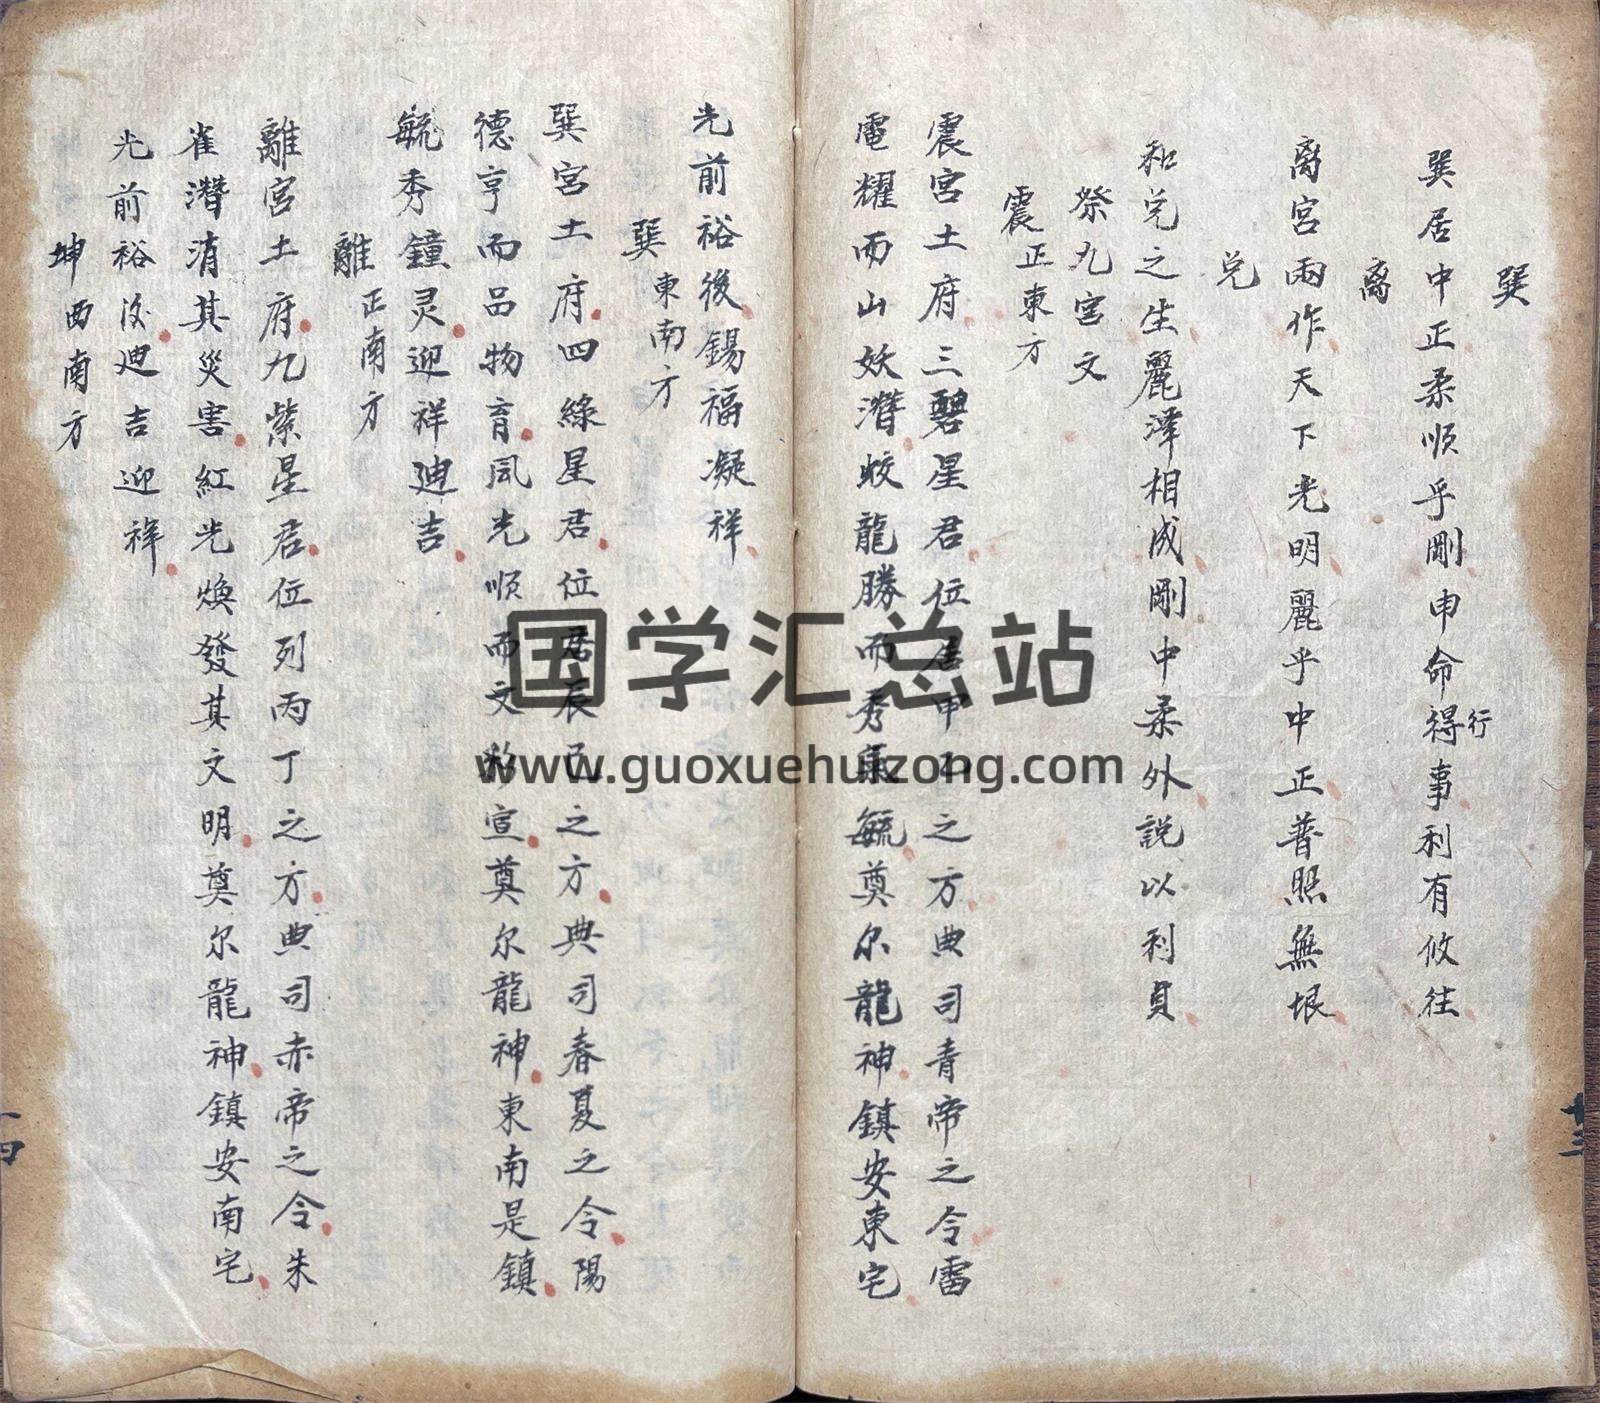 巽
巽居中正柔順乎剛申命得行事利有攸往
离
离宮兩作天下光明麗乎中正普照無垠
兌
和兌之生麗澤相成剛中柔外説以利貞
祭九宮文
震正東方
震宮土府三碧星君位居甲乙之方典司青帝之令雷
電耀而山妖潛蛟龍勝而秀氣毓奠尔龍神鎮安東宅
十三
光前裕後錫福凝祥
巽東南方
巽宮土府四綠星君位居辰巳之方典司春夏之令陽
德亨而品物育風光順而文彩宣奠尔龍神東南是鎮
毓秀鐘灵迎祥迪吉
離正南方
離宮土府九紫星君位列丙丁之方典司赤帝之令朱
雀潛消其災害紅光煥發其文明奠尔龍神鎮安南宅
光前裕后迪吉迎祥
坤西南方
十四
国学汇总站
www.guoxuehuizong.com